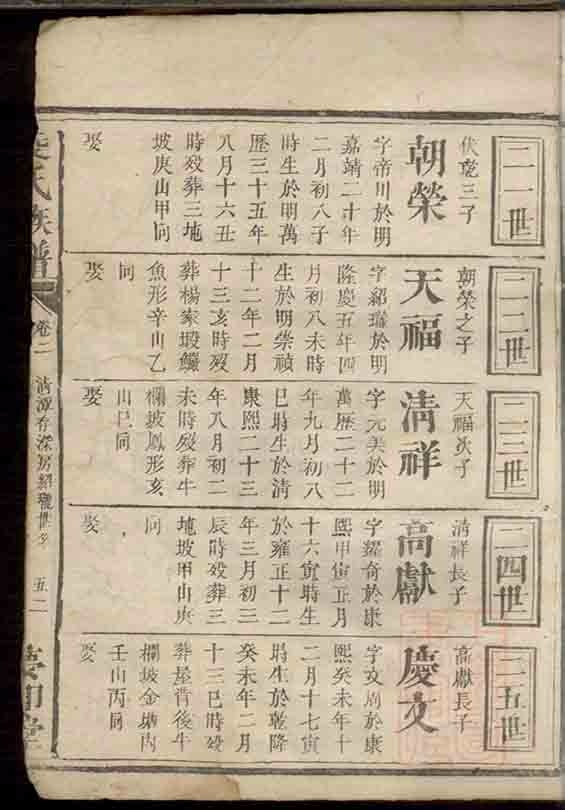 二一世
伏乾三子
朝榮
字帝川於明
嘉靖二十年
二月初八子
時生於明萬
歷三十五年
八月十六丑
時歿葬三地
坡庚山甲向
娶
二二世
朝榮之子
天福
字紹瓏於明
隆慶五年四
月初八未時
生於明崇禎
十二年二月
十三亥時歿
葬楊家塅鱺
魚形辛山乙
向
娶
二三世
天福次子
清祥
字元美於明
萬歷二十二
年九月初八
巳時生於清
康熙二十三
年八月初二
未時歿葬牛
欄坡鳳形亥
山巳向
娶
二四世
清祥長子
高獻
字耀奇於康
熙甲寅正月
十六寅時生
於雍正十二
年三月初三
辰時歿葬三
地坡甲山庚
向
娶
二五世
高獻長子
慶文
字文周於康
熙癸未年十
二月十七寅
時生於乾隆
癸未年二月
十三巳時歿
葬屋背後牛
欄坡金塘內
壬山丙向
娶
氏族譜
卷一
清潭春深房紹瓏世
五二